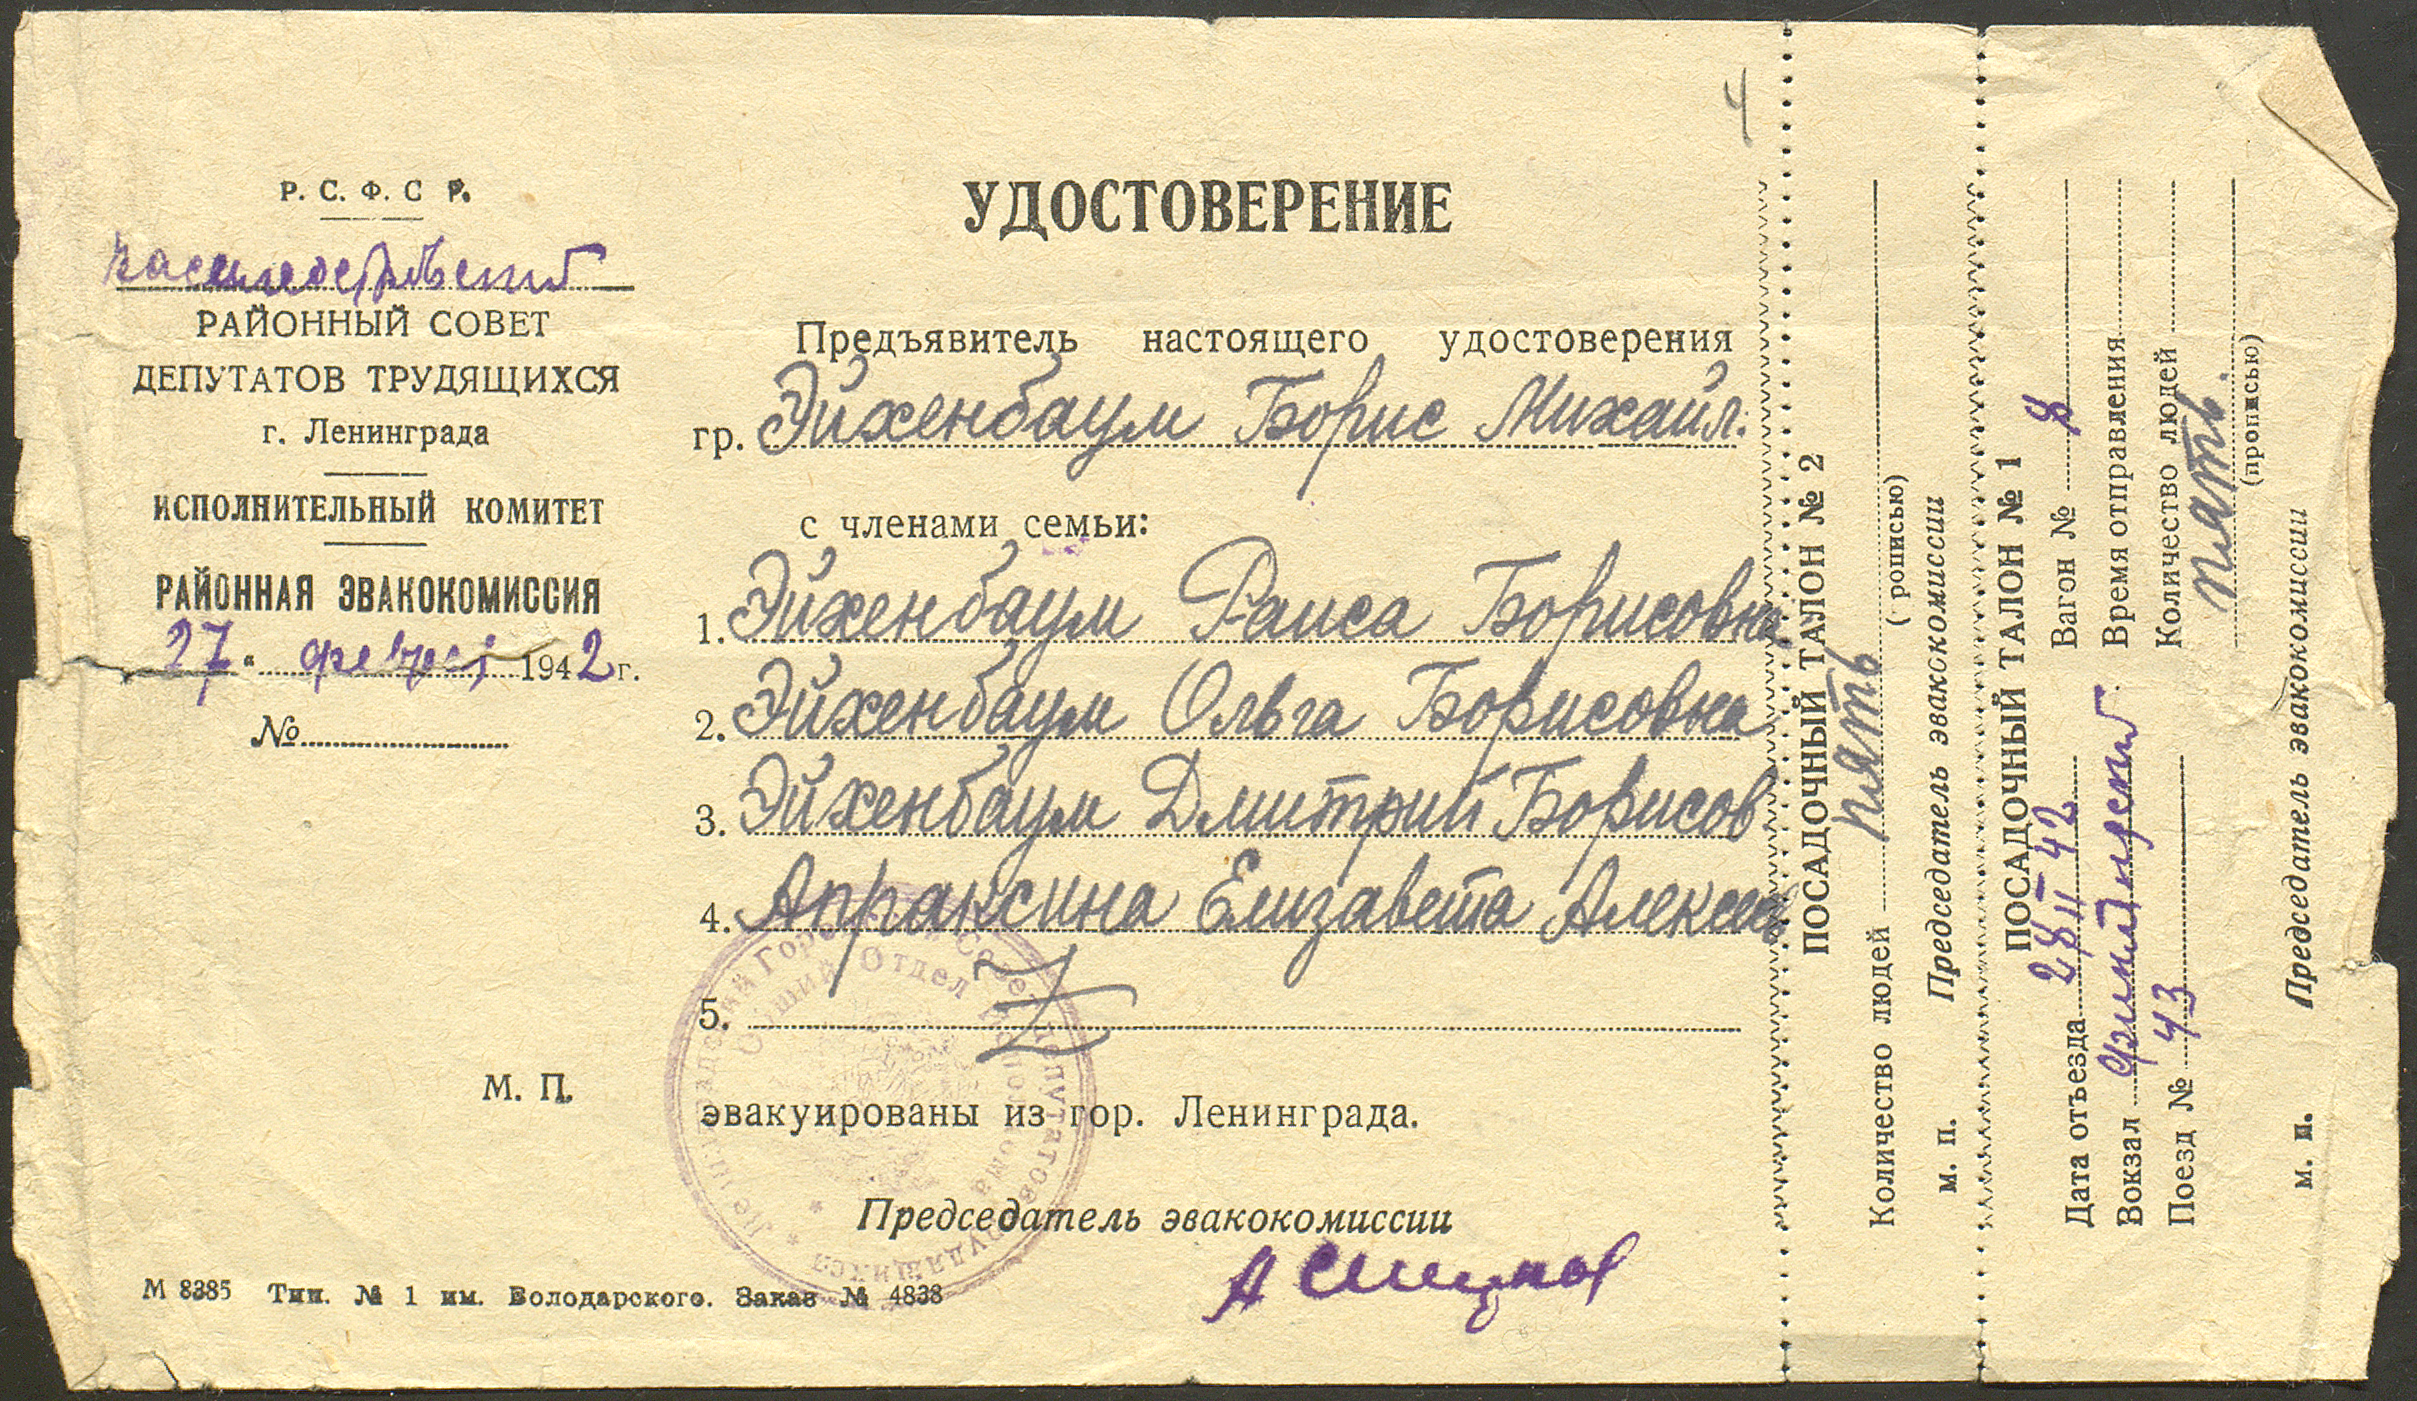 Р. С. Ф. С Р.
РАЙОННЫЙ СОВЕТ
ДЕПУТАТОВ ТРУДЯЩИХСЯ
г. Ленинграда
ИСПОЛНИТЕЛЬНЫЙ КОМИТЕТ
РАЙОННАЯ ЭВАКОКОМИССИЯ
27 " 1942 г.
№
М. П.
М 8385 Тип. № 1 им. Володарского. Заказ № 4838
4
УДОСТОВЕРЕНИЕ
Предъявитель настоящего удостоверения
гр. Эйхенбаум Борис Михайл.
с членами семьи:
1. Эйхенбаум Раиса Борисовна
2. Эйхенбаум Ольга Борисовна
3. Эйхенбаум Дмитрий Борисов
4. Апраксина Елизавета
5.
эвакуированы из гор. Ленинграда.
Председатель эвакокомиссии
Общий Отдел
ПОСАДОЧНЫЙ ТАЛОН № 2
Количество людей пять
( рописью)
м. п. Председатель эвакокомиссии
ПОСАДОЧНЫЙ ТАЛОН № 1
Дата отъезда 28 II 42 Вагон № 8
Вокзал Время отправления
Поезд № 43 Количество людей
пять.
(прописью)
м. п. Председатель эвакокомиссии